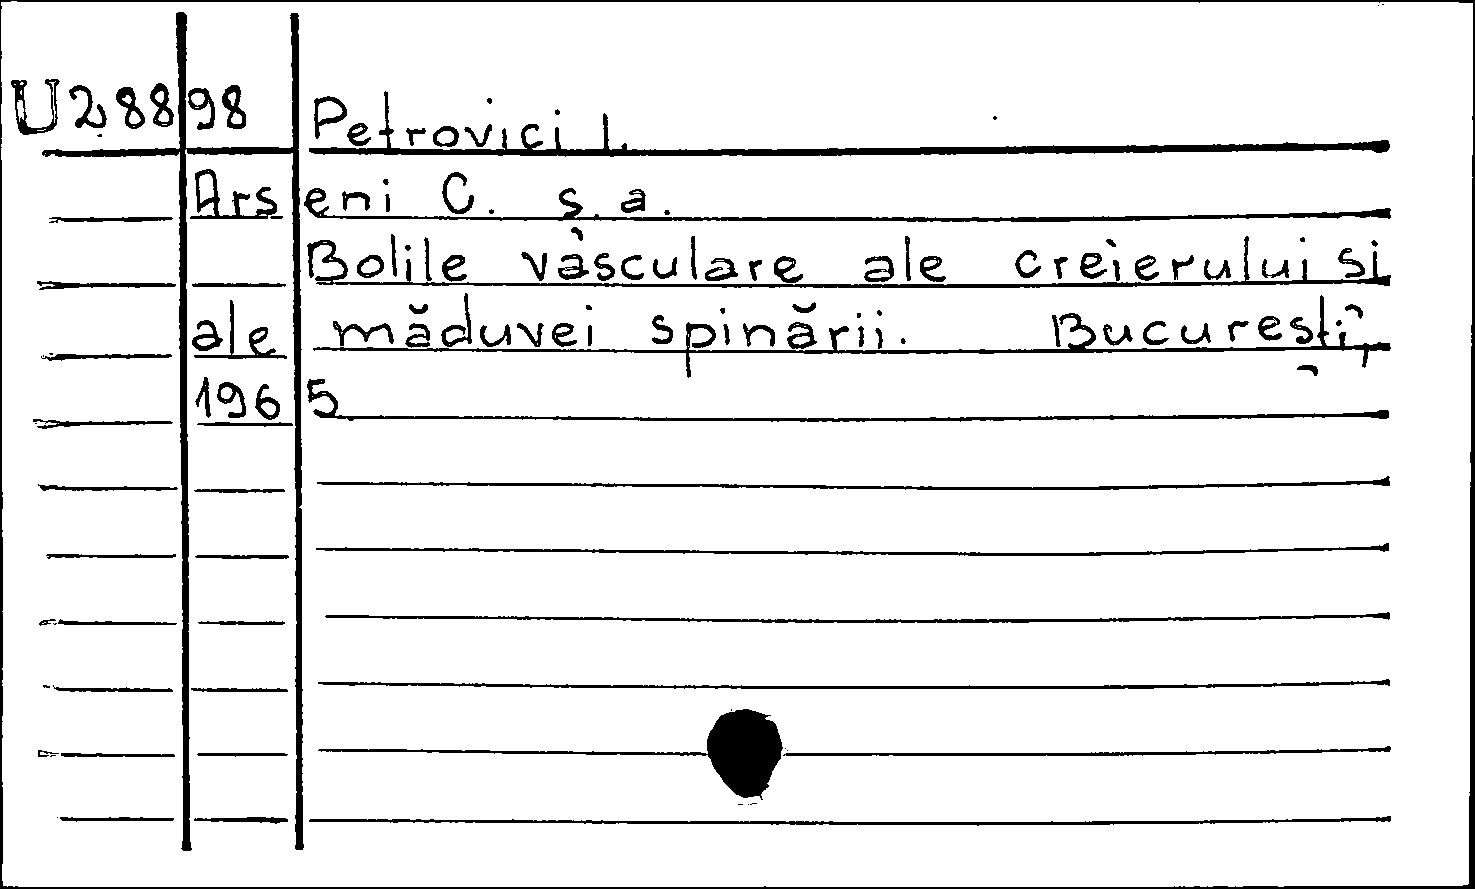 U28898 Petrovici I.
Arseni C. ș.a.
Bolile vasculare ale creierului și
ale măduvei spinării. București,
1965